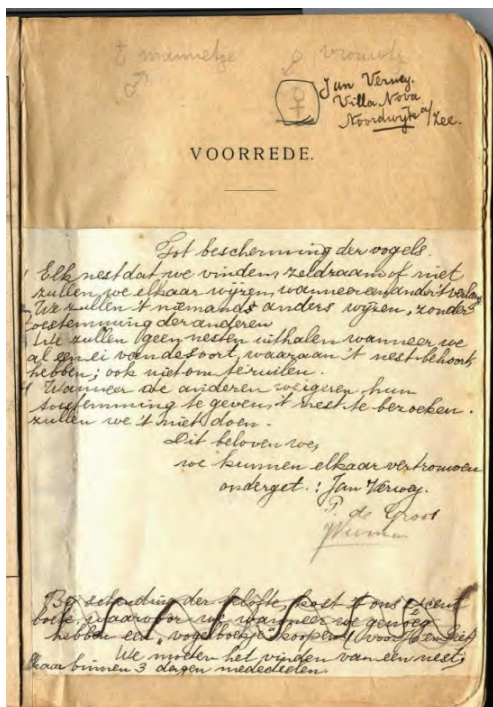 ♂ mannetje ♀ vrouwtje
♂
♀
Jan Verwey.
Villa Nova
Noordwijk a/Zee.
VOORREDE.
Tot bescherming der vogels.
Elk nest dat we vinden, zeldzaam of niet
zullen we elkaar wijzen, wanneer een ander 't verlangt
We zullen 't niemand anders wijzen, zonder
toestemming der anderen
We zullen geen nesten uithalen wanneer we
al een ei van de soort, waaraan 't nest behoort
hebben; ook niet om te ruilen.
4 Wanneer de anderen weigeren, hun
toestemming te geven, 't nest te bezoeken.
zullen we 't niet doen.
Dit beloven we,
we kunnen elkaar vertrouwen
onderget.: Jan Verwey.
P. de Groot
Bij schending der belofte, kost 't ons cent
boete, waarvoor we wanneer we genoeg
hebben een "vogelboekje" koopen
We moeten het vinden van een nest
elkaar binnen 3 dagen mededeelen.